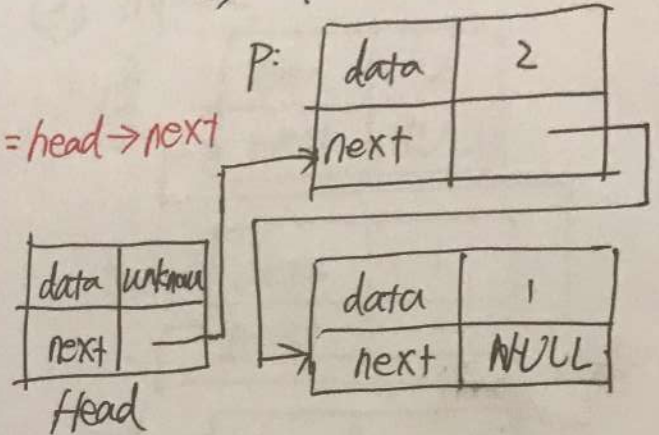 P:
data 2
next
=head→next
data unknow
next
Head
data 1
next NULL